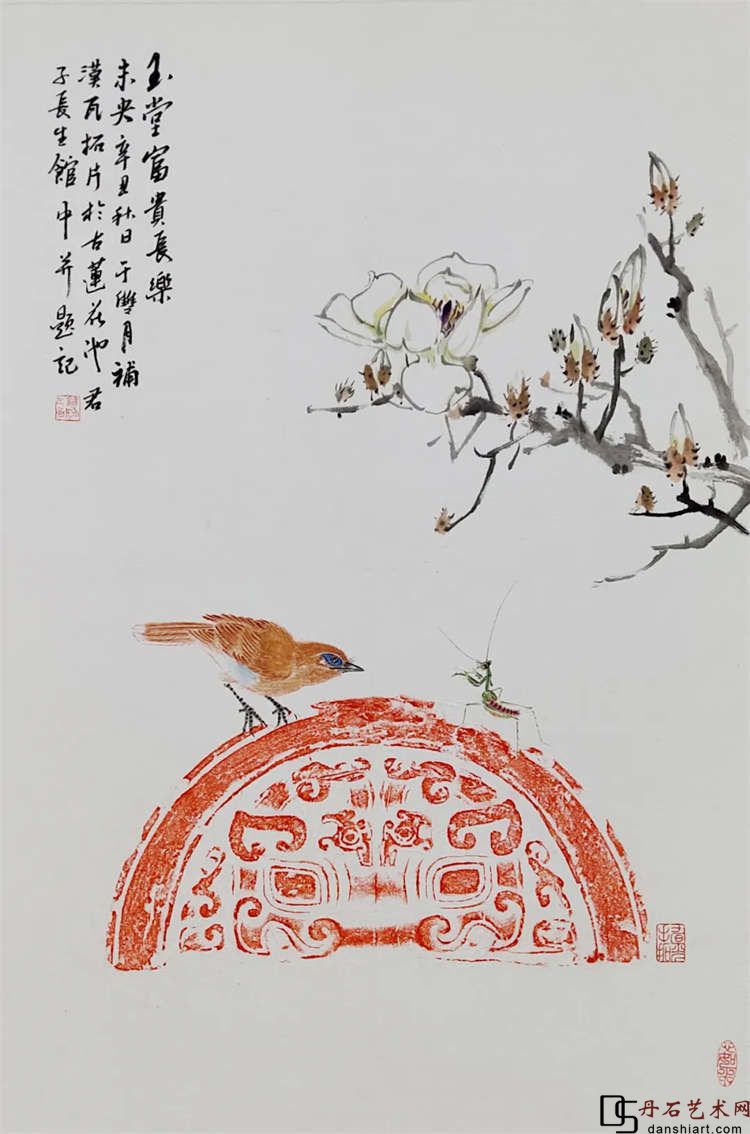 玉堂富貴長樂
未央辛丑秋日于雙月補
漢瓦拓片於古蓮花池君
子長生館中并題記
DS 丹石艺术网
danshiart.com